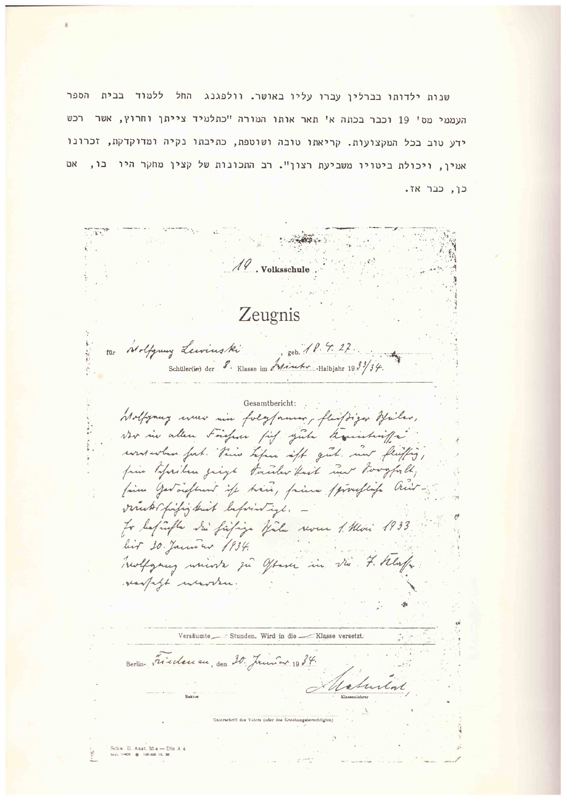 8
שנות ילדותו בברלין עברו עליו באושר. וולפגנג החל ללמוד בבית הספר
העממי מס' 19 וכבר בכתה א' תאר אותו המורה "כתלמיד צייתן וחרוץ, אשר רכש
ידע טוב בכל המקצועות. קריאתו טובה ושוטפת, כתיבתו נקיה ומדוקדקת, זכרונו
אמין, ויכולת ביטויו משביעת רצון". רב התכונות של קצין מחקר היו בו, אם
כן, כבר אז.
19. Volksschule
Zeugnis
für Wolfgang Lewinski, geb. 18.4.27.
Schüler(in) der 8. Klasse im Winter-Halbjahr 1933/34.
Gesamtbericht:
Wolfgang war ein folgsamer, fleißiger Schüler,
der in allen Fächern sich gute Kenntnisse
erworben hat. Sein Lesen ist gut und flüssig,
sein Schreiben zeigt Sauberkeit und Sorgfalt,
sein Gedächtnis ist treu, seine sprachliche Aus-
drucksfähigkeit befriedigt. —
Er besuchte die hiesige Schule vom 1. Mai 1933
bis 30. Januar 1934.
Wolfgang würde zu Ostern in die 7. Klasse
versetzt werden.
Versäumte — Stunden. Wird in die — Klasse versetzt.
Berlin-Friedenau, den 30. Januar 1934.
Rektor
Klassenlehrer
Unterschrift des Vaters (oder des Erziehungsberechtigten)